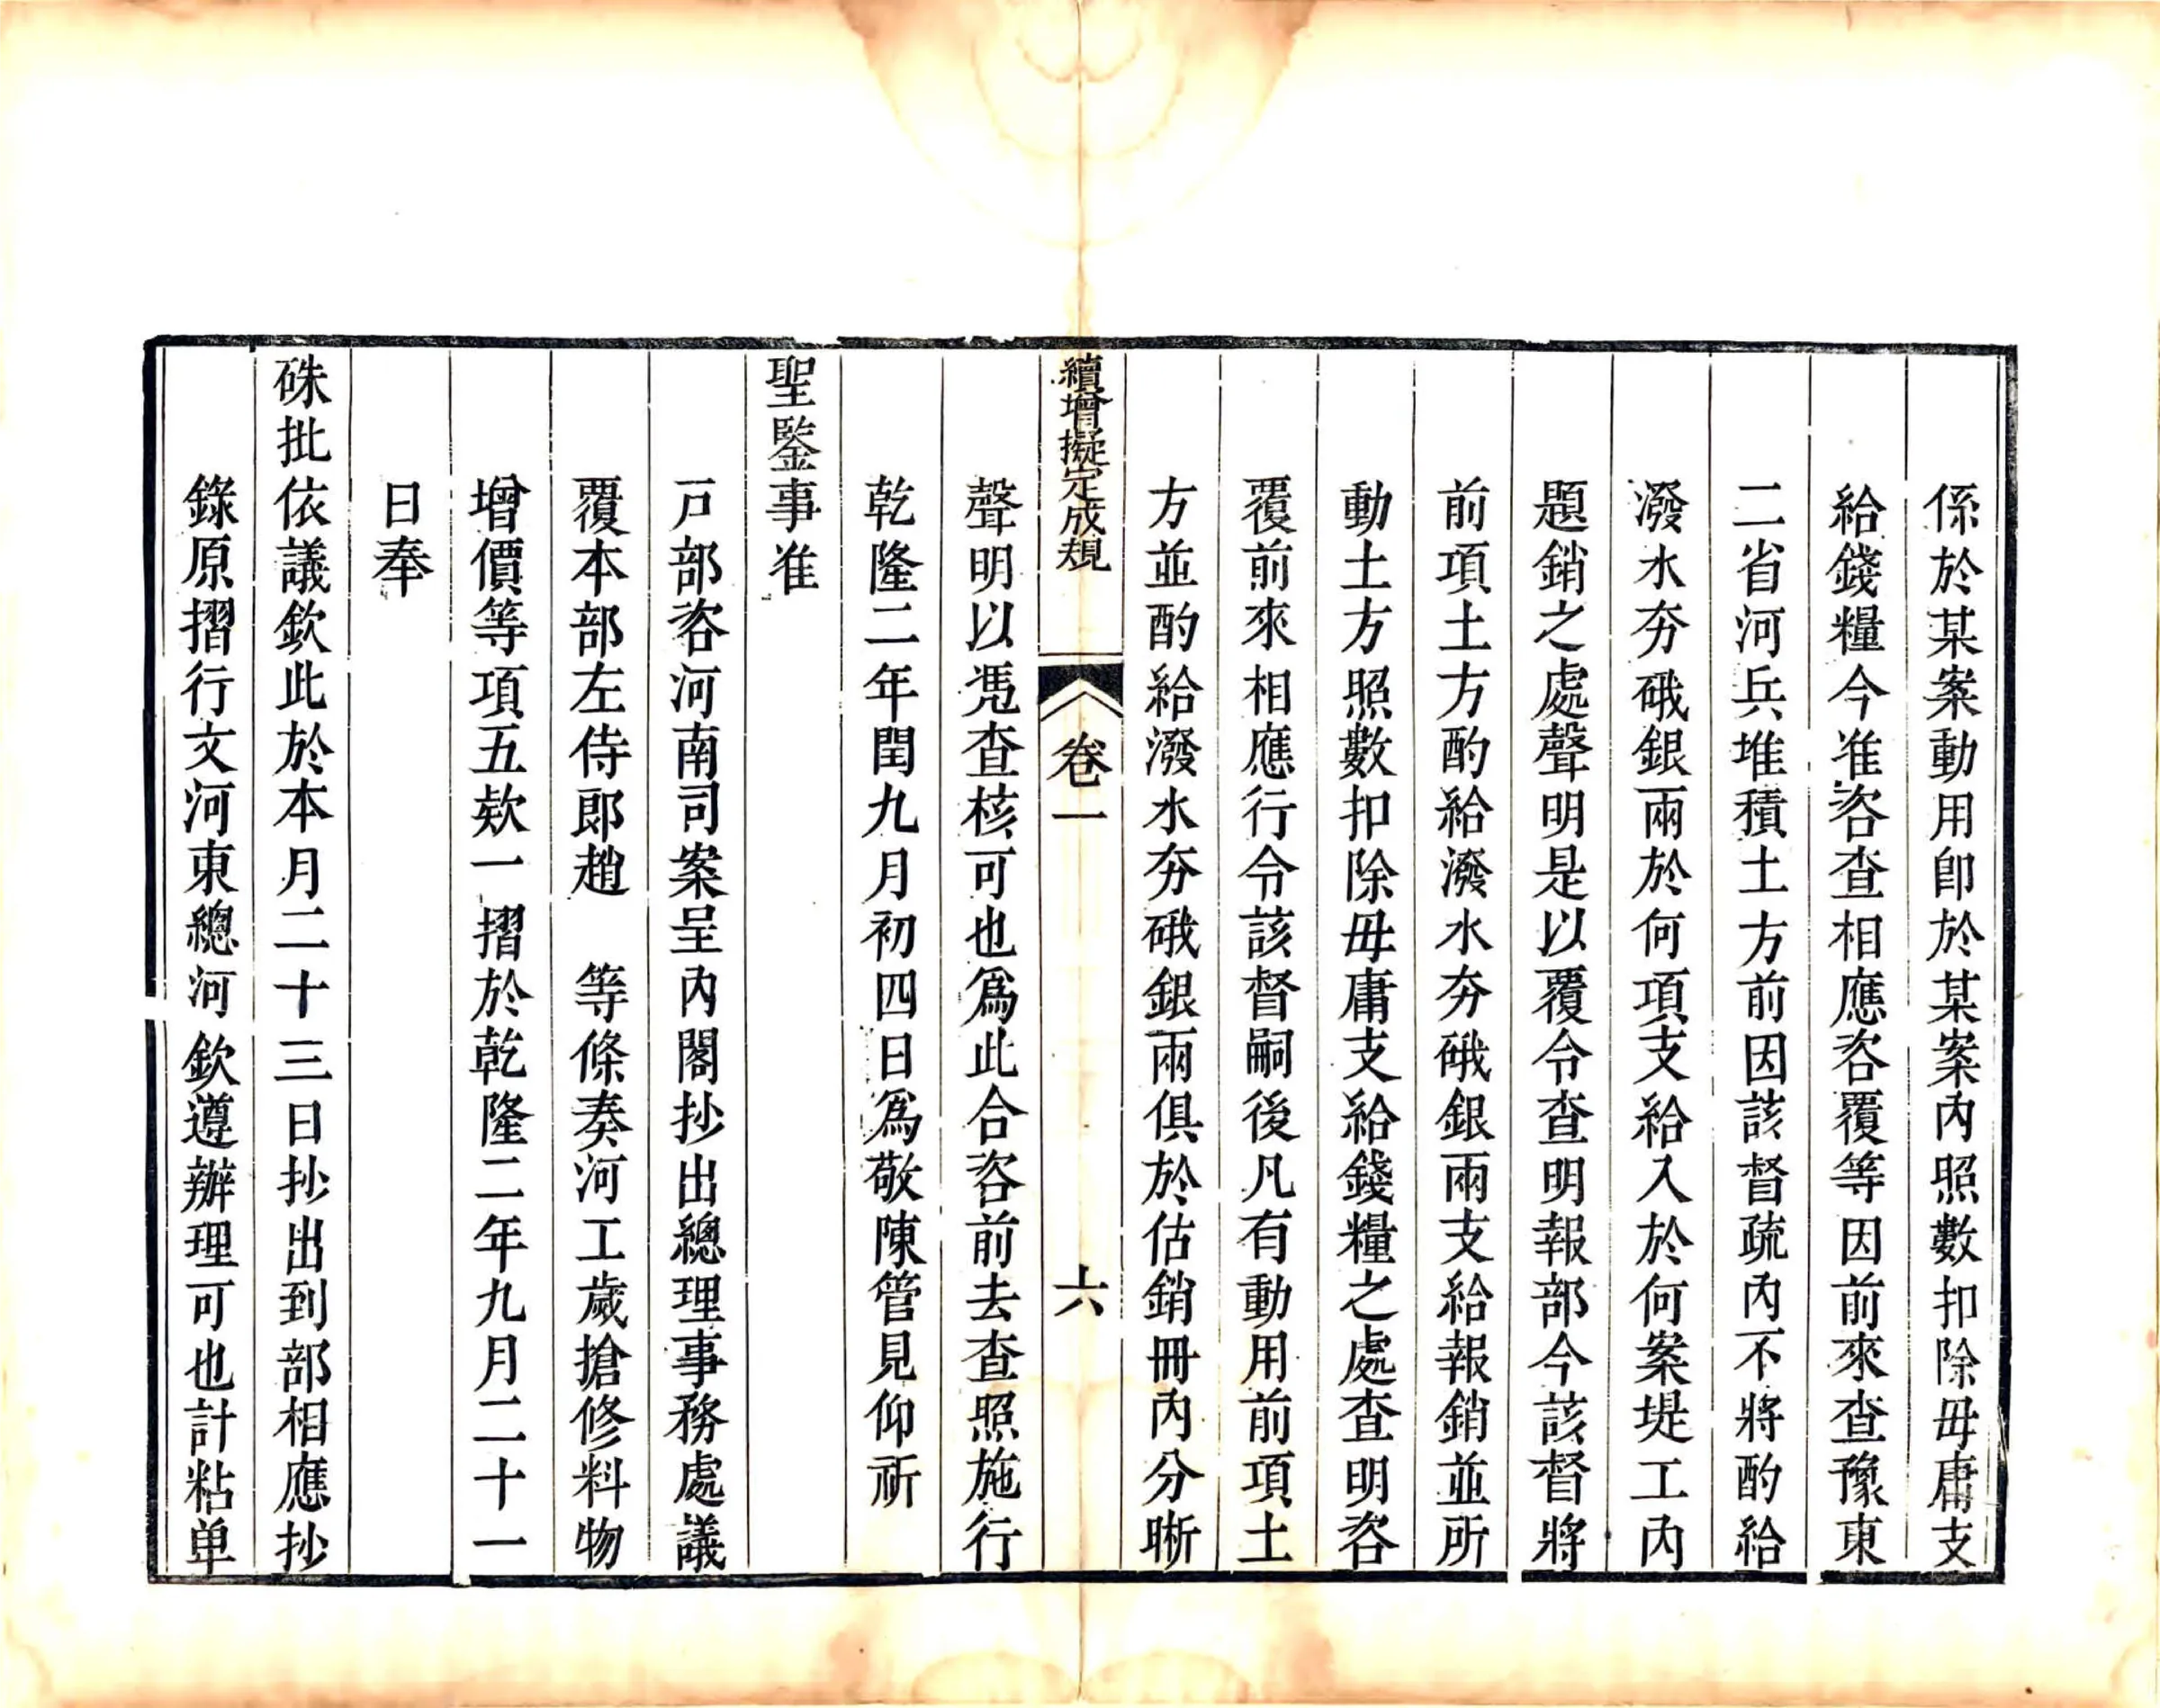 係於某案動用卽於某案內照數扣除毋庸支
給錢糧今准咨查相應咨覆等因前來查豫東
二省河兵堆積土方前因該督疏內不將酌給
潑水夯硪銀兩於何項支給入於何案堤工內
題銷之處聲明是以覆令查明報部今該督將
前項土方酌給潑水夯硪銀兩支給報銷並所
動土方照數扣除毋庸支給錢糧之處查明咨
覆前來相應行令該督嗣後凡有動用前項土
方並酌給潑水夯硪銀兩俱於估銷冊內分晰
續增擬定成規 卷一 六
聲明以凴查核可也爲此合咨前去查照施行
乾隆二年閏九月初四日爲敬陳管見仰祈
聖鑒事准
戸部咨河南司案呈內閣抄出總理事務處議
覆本部左侍郎趙 等條奏河工歲搶修料物
增價等項五欵一摺於乾隆二年九月二十一
日奉
硃批依議欽此於本月二十三日抄出到部相應抄
錄原摺行文河東總河欽遵辦理可也計粘单